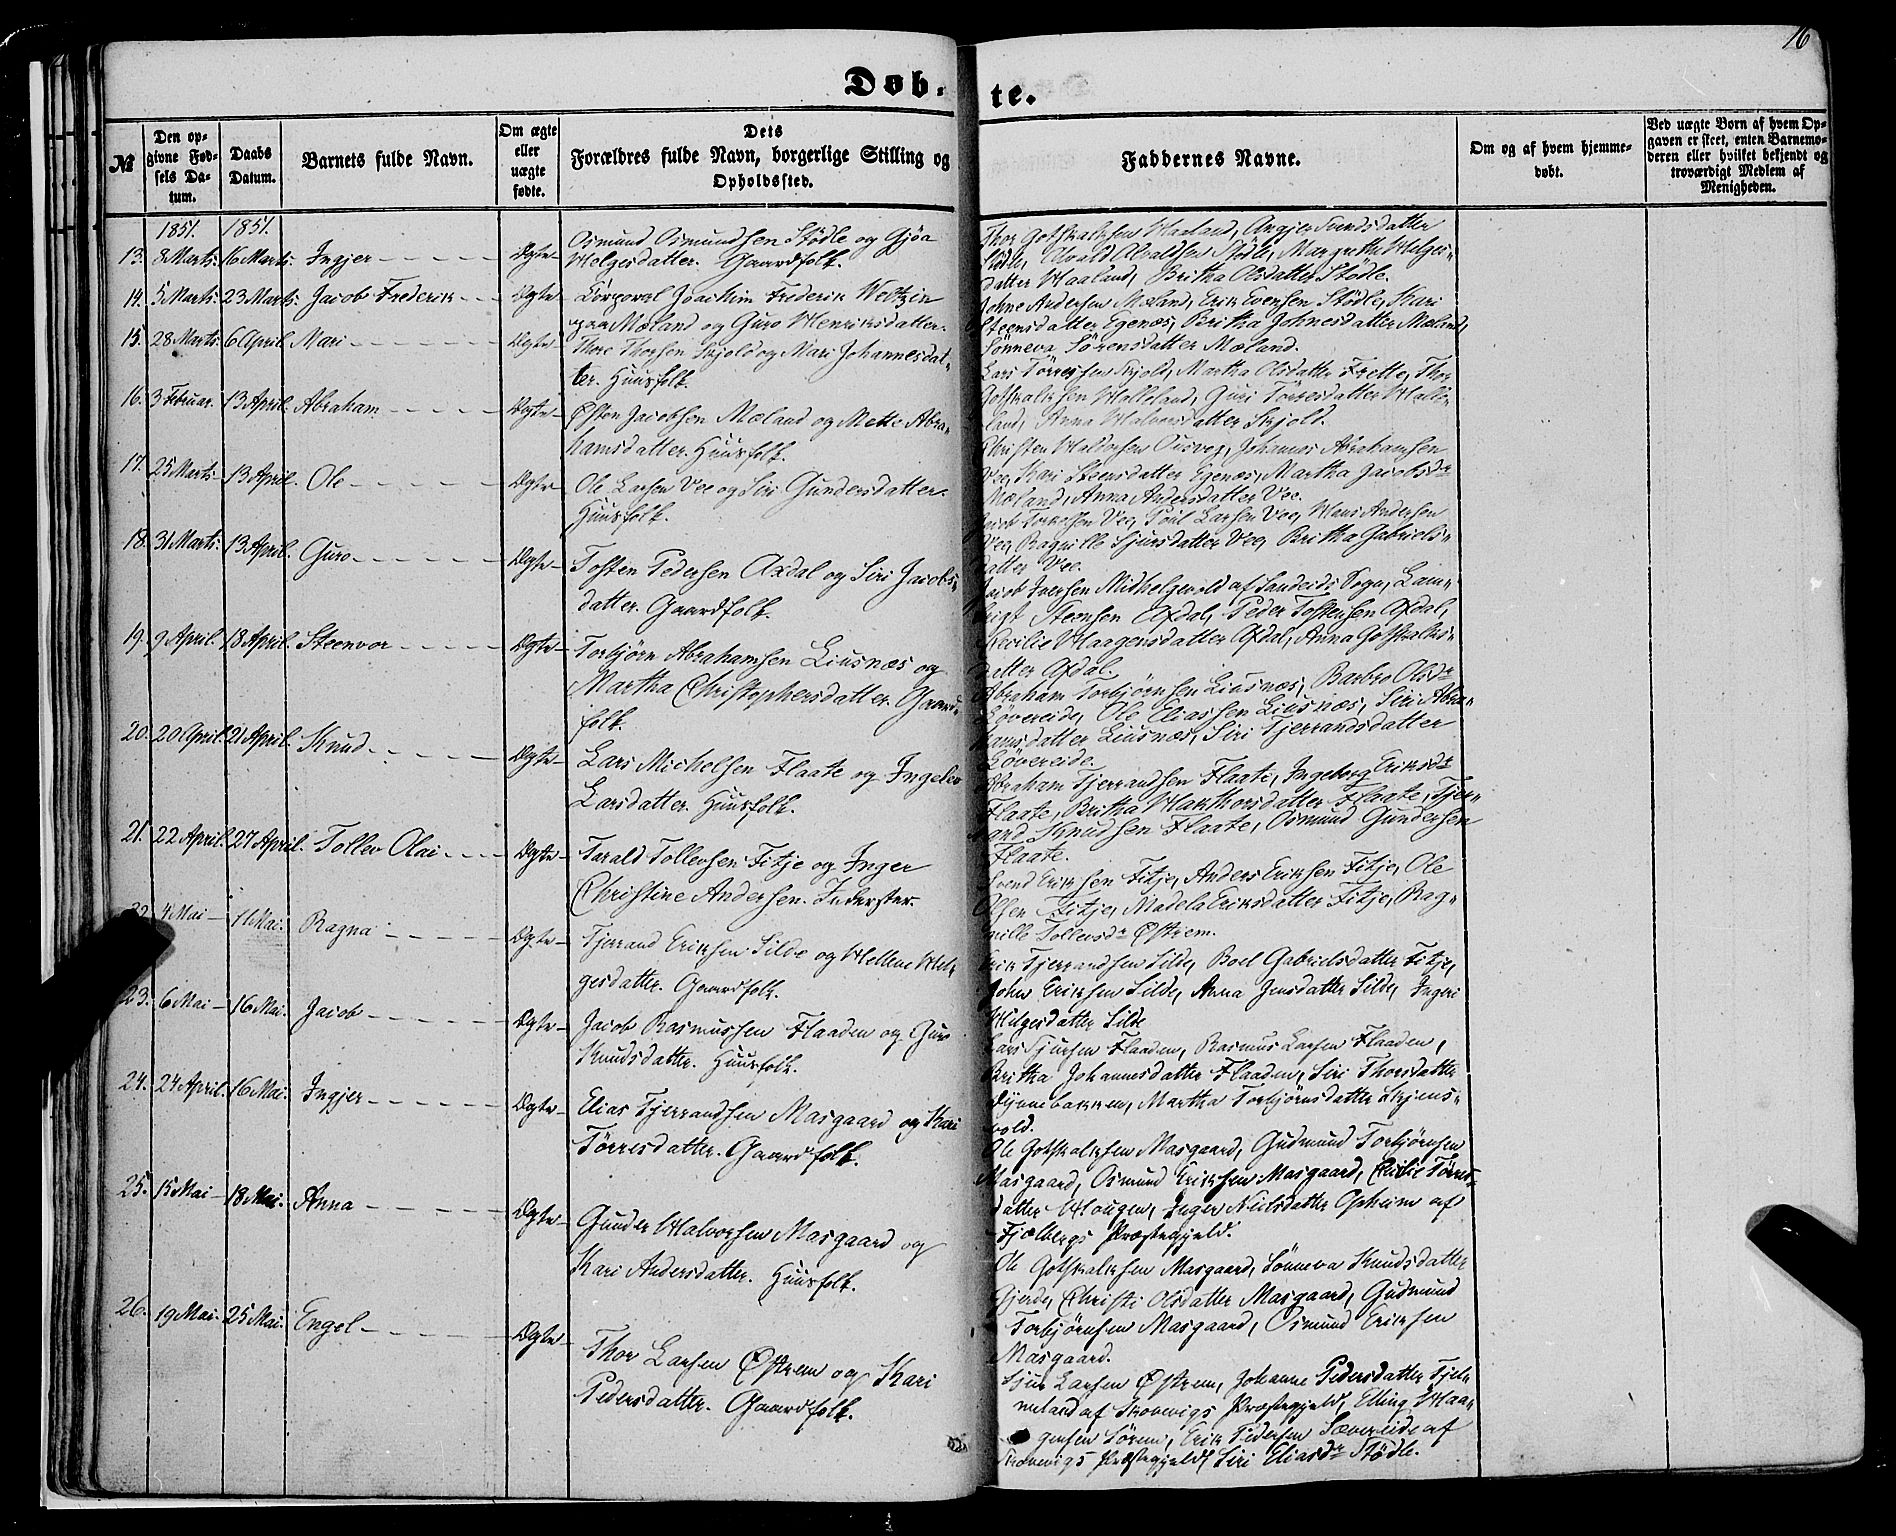 16
Døb-te.
№
Den op-
givne Fød-
sels Da-
tum.
Daabs
Datum.
Barnets fulde Navn.
Om ægte
eller
uægte
fødte.
Dets
Forældres fulde Navn, borgerlige Stilling og
Opholdssted.
Faddernes Navne.
Om og af hvem hjemme-
døbt.
Ved uægte Børn af hvem Op-
gaven er skeet, enten Barnemo-
deren eller hvilket bekjendt og
troværdigt Medlem af
Menigheden.
1851. 1851.
13. 8 Marts. 16 Marts. Ingjer Ægte
Osmund Osmundsen Stødle og Gjøa
Helgesdatter. Gaardfolk.
Thor Gotskalksen Haaland, Angjer Svendsdatter
Stødle, Alvald Alvaldsen Stødle, Margrethe Helges-
datter Haaland, Britha Olsdatter Stødle.
14. 5 Marts. 23 Marts. Jacob Frederik Ægte
Corporal Joachim Frederik Weltzin
paa Mæland og Guro Henriksdatter.
Johne Andersen Mæland, Erik Evensen Stødle, Kari
Steensdatter Egenæs, Britha Johnesdatter Mæland,
Sønneva Sørensdatter Mæland.
15. 28 Marts. 6 April. Mari Ægte
Thore Thorsen Skjold og Mari Johannesdat-
ter. Huusfolk.
Lars Tørresen Skjold, Martha Olsdatter Frette, Thor
Gotskalksen Halleland, Guri Tørresdatter Halle-
land, Anna Halvorsdatter Skjold.
16. 3 Februar. 13 April. Abraham Ægte
Østen Jacobsen Mæland og Mette Abra-
hamsdatter. Huusfolk.
Christen Haldorsen Ousvog, Johannes Abrahamsen
Vee, Kari Steensdatter Egenæs, Martha Jacobsdr
Mæland, Anna Andersdatter Vee.
17. 25 Marts. 13 April. Ole Ægte
Ole Larsen Vee og Siri Gundersdatter.
Huusfolk.
Jacob Torkelsen Vee, Poul Larsen Vee, Hans Andersen
Vee, Ragnille Sjursdatter Vee, Britha Gabriels-
datter Vee.
18. 31 Marts. 13 April. Guro Ægte
Tosten Pedersen Axdal og Siri Jacobs-
datter. Gaardfolk.
Jacob Iversen Midhelgevold af Sandeids Sogn, Lam-
brigt Steensen Axdal, Peder Tostensen Axdal,
Cecilie Haagensdatter Axdal, Anna Gotskalks-
datter Axdal.
19. 9 April. 18 April. Steenvor Ægte
Torbjørn Abrahamsen Liusnæs og
Martha Christophersdatter. Gaard-
folk.
Abraham Torbjørnsen Liusnæs, Barbro Olsdr
Løvereide, Ole Eliassen Liusnæs, Siri Abra-
hamsdatter Liusnæs, Siri Tjerrandsdatter
Løvereide.
20. 20 April. 21 April. Knud Ægte
Lars Michelsen Flaate og Ingebor
Larsdatter. Huusfolk.
Abraham Tjerrandsen Flaate, Ingeborg Eriksdr
Flaate, Britha Hakthorsdatter Flaate, Tjer-
rand Knudsen Flaate, Osmund Gundersen
Flaate.
21. 22 April. 27 April. Tollev Olai Ægte
Tarald Tollevsen Fitje og Inger
Christine Andersen. Inderster.
Svend Eriksen Fitje, Anders Eriksen Fitje, Ole
Olsen Fitje, Madela Eriksdatter Fitje, Rag-
nille Tollevsdr Østrem.
22. 4 Mai 11 Mai. Ragna Ægte
Tjerrand Eriksen Silde og Hellene Hel-
gesdatter. Gaardfolk.
Erik Tjerrandsen Silde, Boel Gabrielsdatter Fitje,
John Eriksen Silde, Anna Jensdatter Silde, Ingeri
Helgesdatter Silde
23. 6 Mai 16 Mai. Jacob Ægte
Jacob Rasmussen Flaaden og Guro
Knudsdatter. Huusfolk.
Lars Sjursen Flaaden, Rasmus Larsen Flaaden,
Britha Johannesdatter Flaaden, Siri Thorsdatter
Dynnebakken, Martha Torbjørnsdatter Skjens-
vold.
24. 24 April. 16 Mai. Ingjer Ægte
Elias Tjerrandsen Masgaard og Kari
Tørresdatter. Gaardfolk.
Ole Gotskalksen Masgaard, Gudmund Torbjørnsen
Masgaard, Osmund Eriksen Masgaard, Cecilie Tørres-
datter Hougen, Inger Neilsdatter Opheim af
Fjelbergs Præstegjeld.
25. 15 Mai 18 Mai. Anna Ægte
Gunder Halvorsen Masgaard og
Kari Andersdatter. Huusfolk.
Ole Gotskalksen Masgaard, Sønneva Knudsdatter
Gjerde, Christi Olsdatter Masgaard, Gudmund
Torbjørnsen Masgaard, Osmund Eriksen
Masgaard.
26. 19 Mai. 25 Mai. Engel Ægte
Thor Larsen Østrem og Kari
Pedersdatter. Gaardfolk.
Sjur Larsen Østrem, Johanne Pedersdatter Tjel-
meland af Skonevigs Præstegjeld, Elling Haa-
gensen Sørem, Erik Pedersen Sævereide af
Skonevigs Præstegjeld, Siri Eliasdr Stødle.